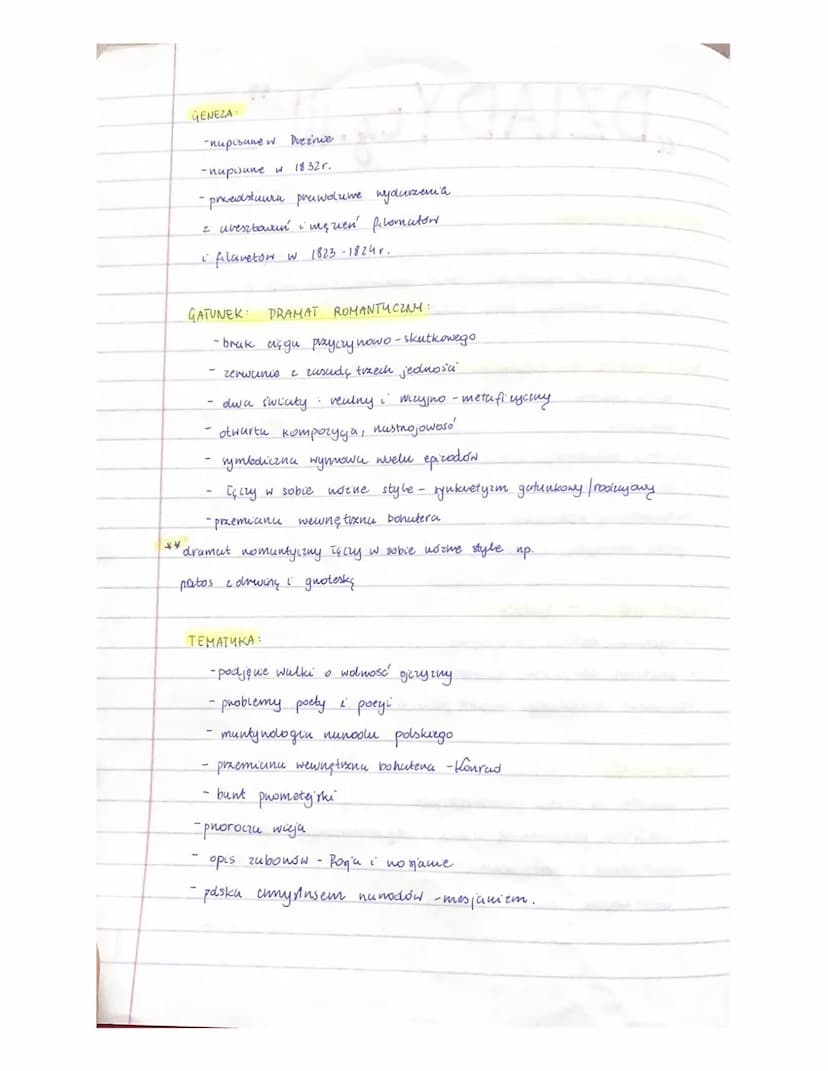 GENEZA:
- napisane w Dreźnie
- napisane w 1832r.
- przedstawia prawdziwe wydarzenia
z aresztowań i więzień filomatów
i filaretów w 1823-1824r.
GATUNEK: DRAMAT ROMANTYCZNY:
- brak ciągu przyczynowo-skutkowego
- zerwanie z zasadą trzech jedności
- dwa światy: realny i wizyjno-metafizyczny
- otwarta kompozycja, nastrojowość
- symboliczna wymowa wielu epizodów
- łączy w sobie różne style - synkretyzm gatunkowy/rodzajowy
- przemiana wewnętrzna bohatera
** dramat romantyczny łączy w sobie różne style np.
patos z drwiną i groteską
TEMATYKA:
- podjęcie walki o wolność ojczyzny
- problemy poety i poezji
- martyrologia narodu polskiego
- przemiana wewnętrzna bohatera - Konrad
- bunt prometejski
- prorocza wizja
- opis zaborów - Rosja i rosjanie
- polska chrystusem narodów - mesjanizm.
„DZIADY cz. III"